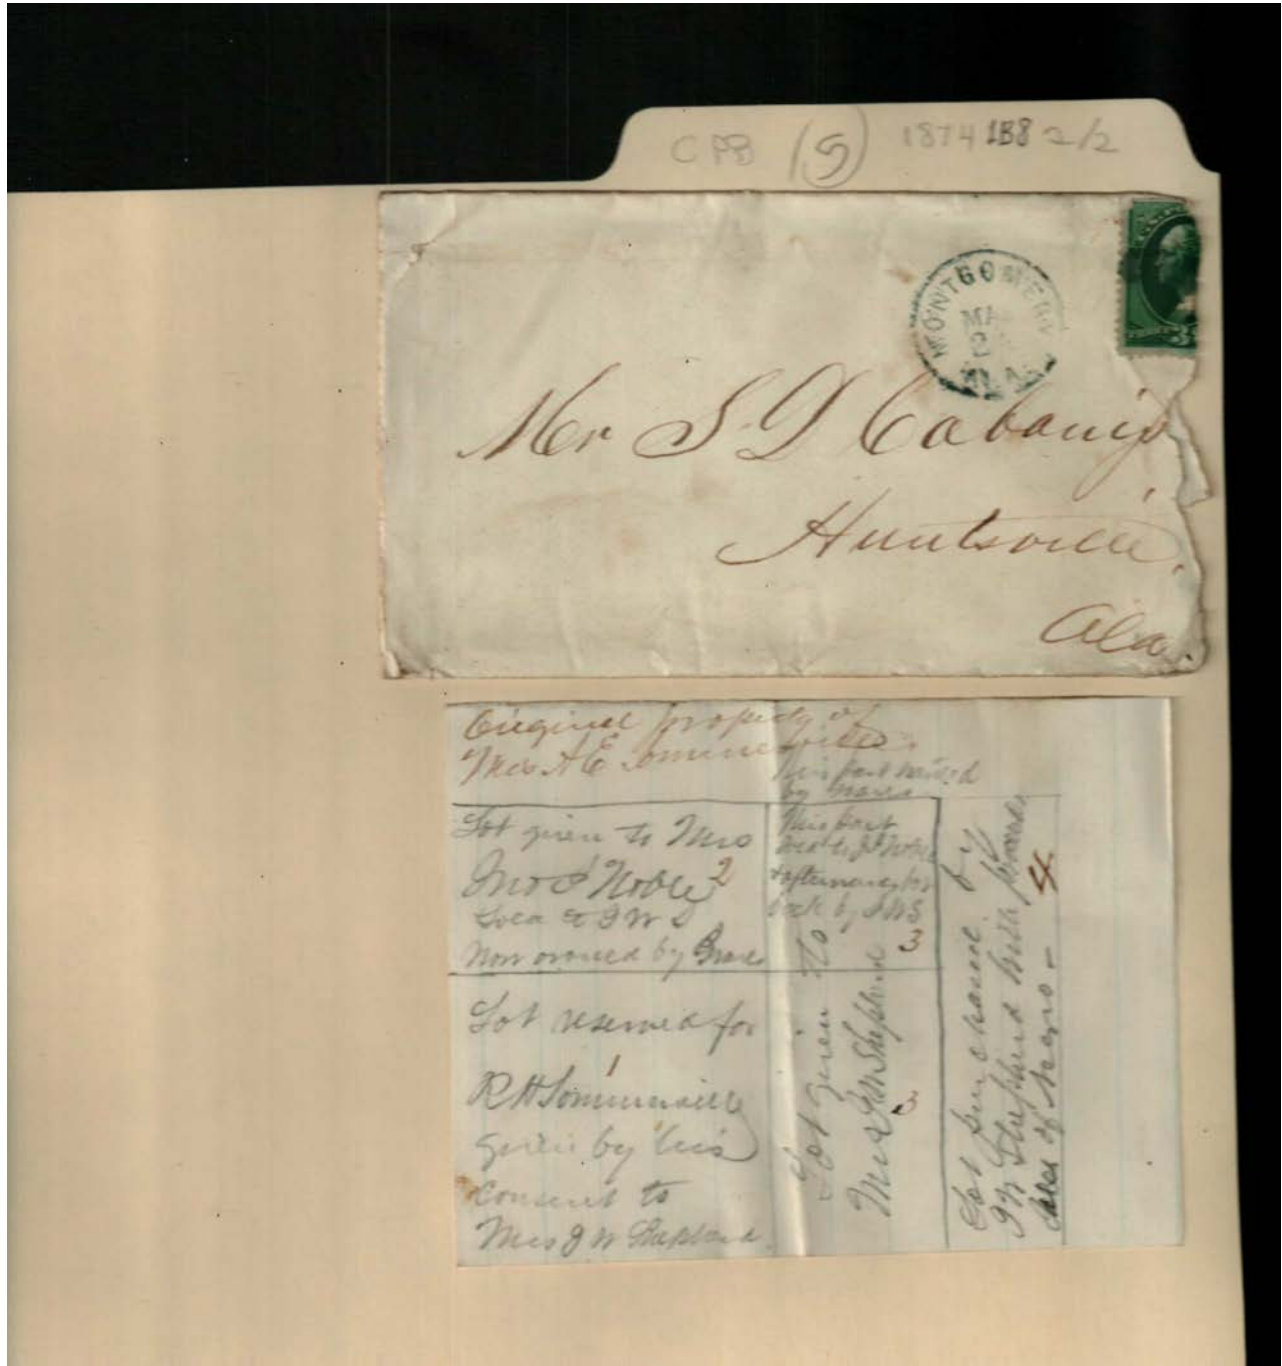 CPB (5) 1874 1B8 2/2
MONTGOMERY
ALA
Mr S. D Cabaniss
Huntsville,
Ala.
Original property of
Mrs A E Sommerville
This part owned
by Graves
Lot given to Mrs
Jno S Noble 2
Sold to J W S
Now owned by Graves
This part
sold to J S Noble
& afterwards
back by JWS
3
Lot reserved for
1
R H Sommerville
given by his
consent to
Mrs J W Shepherd
Lot given to
Mrs J W Shepherd
3
Lot purchased by
J W Shepherd with proceeds
sales of Negro -
4